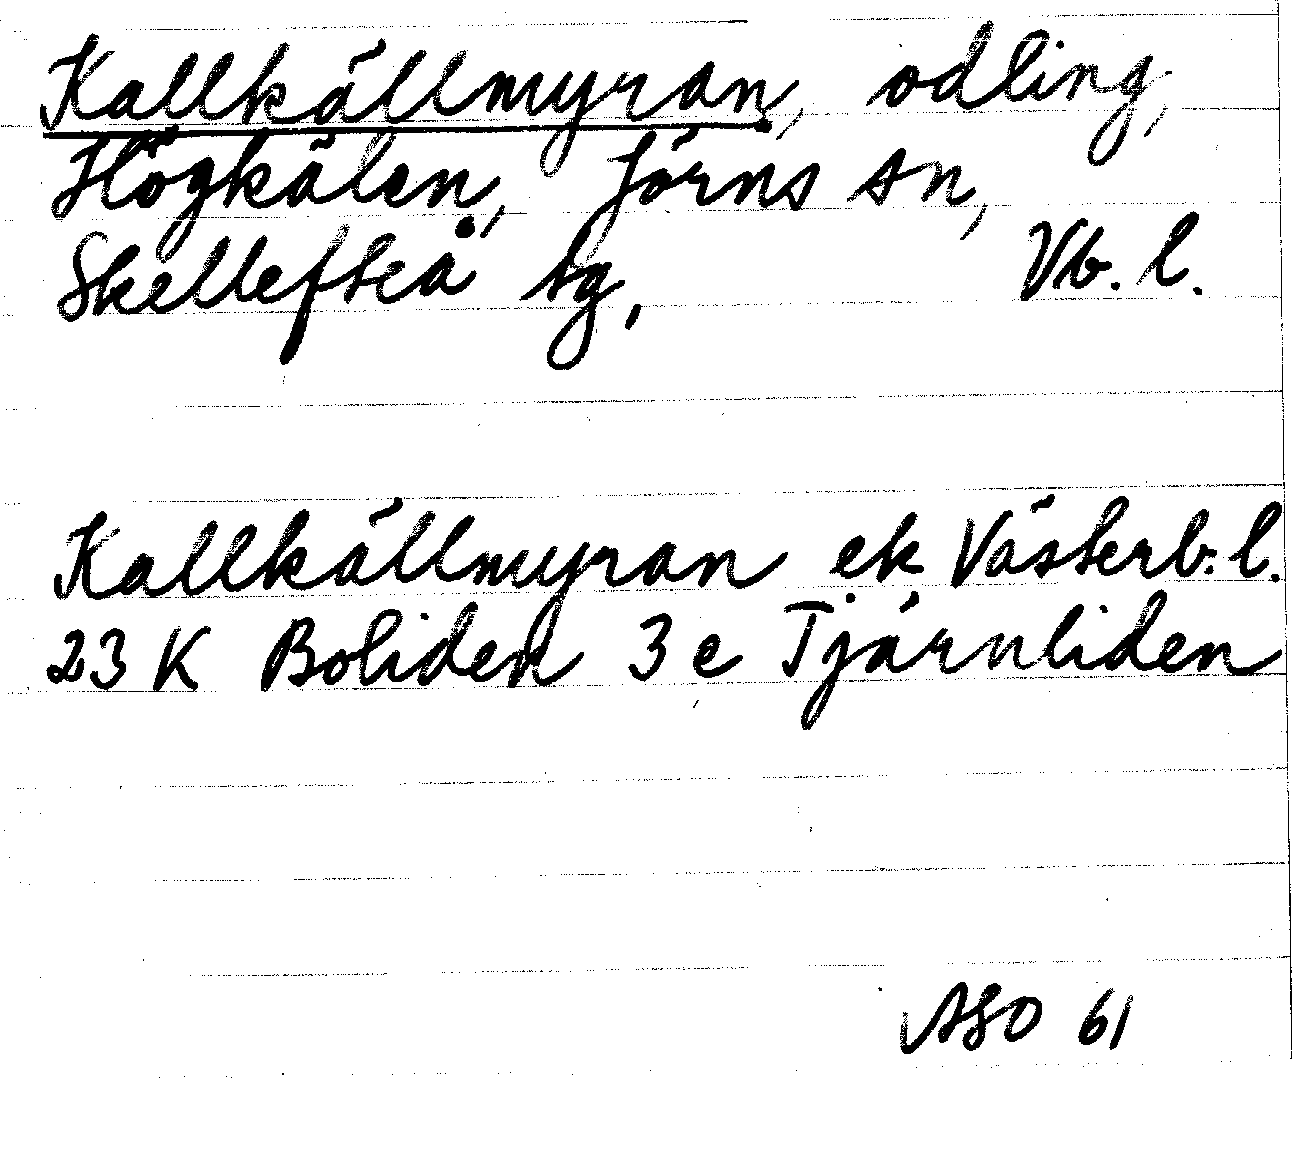 Kallkällmyran, odling,
Högkälen, Jörns sn,
Skellefteå tg, Vb. l.
Kallkällmyran ek Västerb. l.
23 K Boliden 3 e Tjärnliden
ASO 61